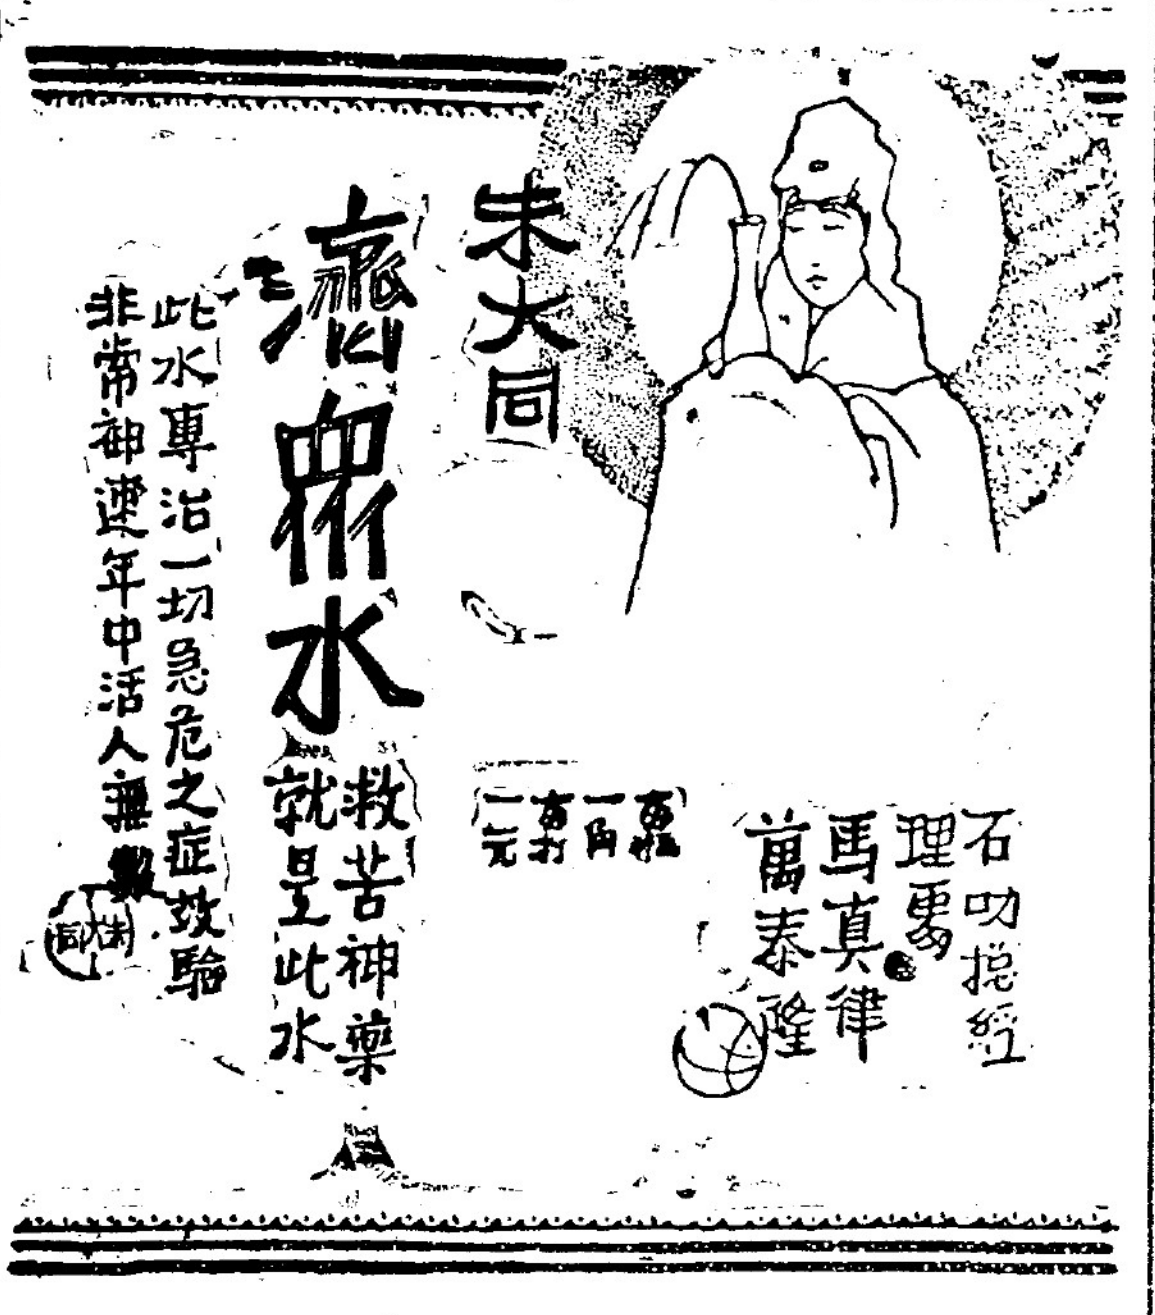 石叻總經
理處
馬真律
萬泰隆
每打
一角
一元
朱大同
濟眾水
救苦神藥
就是此水
此水專治一切急危之症效驗
非常神速年中活人無數